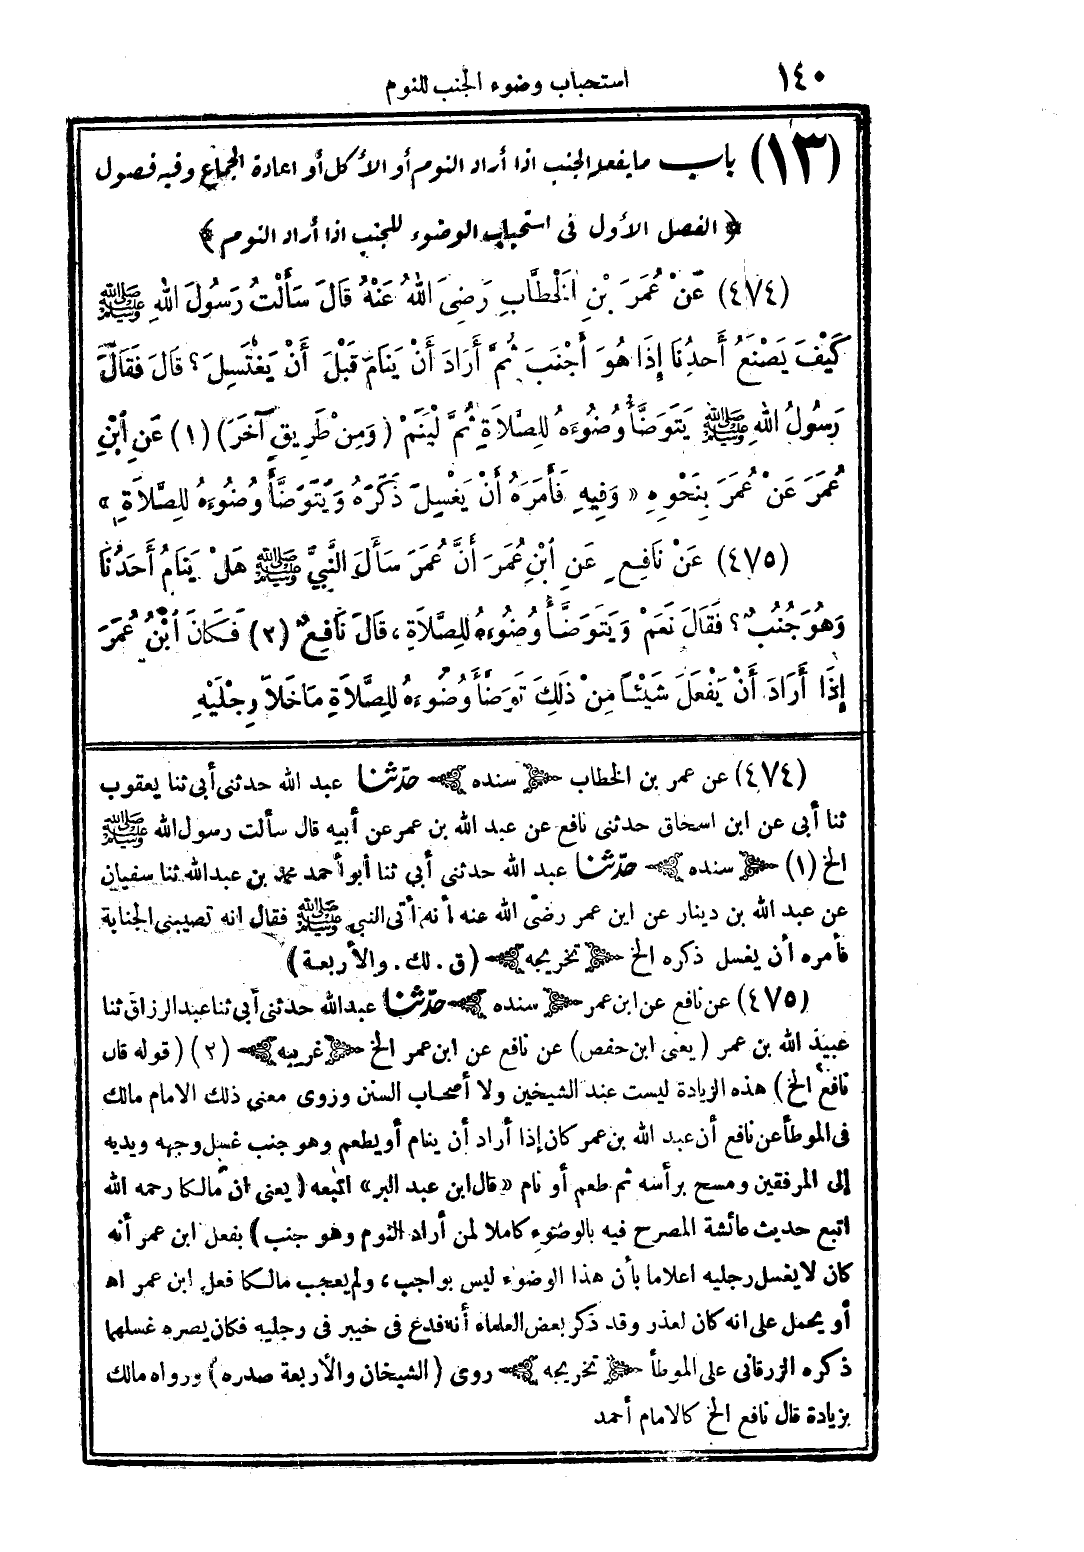 ١٤٠
استحباب وضوء الجنب للنوم
(١٣) باب ما يفعل الجنب اذا أراد النوم أو الأكل أو اعادة الجماع وفيه فصول
﴿ الفصل الأول فى استحباب الوضوء للجنب اذا أراد النوم ﴾
(٤٧٤) عَنْ عُمَرَ بْنِ الْخَطَّابِ رَضِىَ اللهُ عَنْهُ قَالَ سَأَلْتُ رَسُولَ اللهِ ﷺ
كَيْفَ يَصْنَعُ أَحَدُنَا إِذَا هُوَ أَجْنَبَ ثُمَّ أَرَادَ أَنْ يَنَامَ قَبْلَ أَنْ يَغْتَسِلَ؟ قَالَ فَقَالَ
رَسُولُ اللهِ ﷺ يَتَوَضَّأُ وُضُوءَهُ لِلصَّلَاةِ ثُمَّ لْيَنَمْ (وَمِنْ طَرِيقٍ آخَرَ) (١) عَنِ ابْنِ
عُمَرَ عَنْ عُمَرَ بِنَحْوِهِ « وَفِيهِ فَأَمَرَهُ أَنْ يَغْسِلَ ذَكَرَهُ وَيَتَوَضَّأَ وُضُوءَهُ لِلصَّلَاةِ »
(٤٧٥) عَنْ نَافِعٍ عَنِ ابْنِ عُمَرَ أَنَّ عُمَرَ سَأَلَ النَّبِىَّ ﷺ هَلْ يَنَامُ أَحَدُنَا
وَهُوَ جُنُبٌ؟ فَقَالَ نَعَمْ وَيَتَوَضَّأُ وُضُوءَهُ لِلصَّلَاةِ، قَالَ نَافِعٌ (٢) فَكَانَ ابْنُ عُمَرَ
إِذَا أَرَادَ أَنْ يَفْعَلَ شَيْئًا مِنْ ذَلِكَ تَوَضَّأَ وُضُوءَهُ لِلصَّلَاةِ مَا خَلَا رِجْلَيْهِ
(٤٧٤) عن عمر بن الخطاب ﴿ سنده ﴾ حدّثنا عبد الله حدثنى أبى ثنا يعقوب
ثنا أبى عن ابن اسحاق حدثنى نافع عن عبد الله بن عمر عن أبيه قال سألت رسول الله ﷺ
الخ (١) ﴿ سنده ﴾ حدّثنا عبد الله حدثنى أبي ثنا أبو أحمد محمد بن عبدالله ثنا سفيان
عن عبد الله بن دينار عن ابن عمر رضى الله عنه أنه أتى النبى ﷺ فقال انه تصيبنى الجنابة
فأمره أن يغسل ذكره الخ ﴿ تخريجه ﴾ (ق . لك . والأربعة)
(٤٧٥) عن نافع عن ابن عمر ﴿ سنده ﴾ حدّثنا عبدالله حدثنى أبى ثنا عبدالرزاق ثنا
عبيد الله بن عمر (يعنى ابن حفص) عن نافع عن ابن عمر الخ ﴿ غريبه ﴾ (٢) (قوله قال
نافع الخ) هذه الزيادة ليست عند الشيخين ولا أصحاب السنن وروى معنى ذلك الامام مالك
فى الموطأ عن نافع أن عبد الله بن عمر كان إذا أراد أن ينام أو يطعم وهو جنب غسل وجهه ويديه
إلى المرفقين ومسح برأسه ثم طعم أو نام « قال ابن عبد البر » اتبعه (يعنى ان مالكا رحمه الله
اتبع حديث عائشة المصرح فيه بالوضوء كاملا لمن أراد النوم وهو جنب) بفعل ابن عمر أنه
كان لا يغسل رجليه اعلاما بأن هذا الوضوء ليس بواجب، ولم يعجب مالكا فعل ابن عمر اه
أو يحمل على انه كان لعذر وقد ذكر بعض العلماء أنه فدع فى خيبر فى رجليه فكان يضره غسلهما
ذكره الزرقانى على الموطأ ﴿ تخريجه ﴾ روى (الشيخان والأربعة صدره) ورواه مالك
بزيادة قال نافع الخ كالامام أحمد